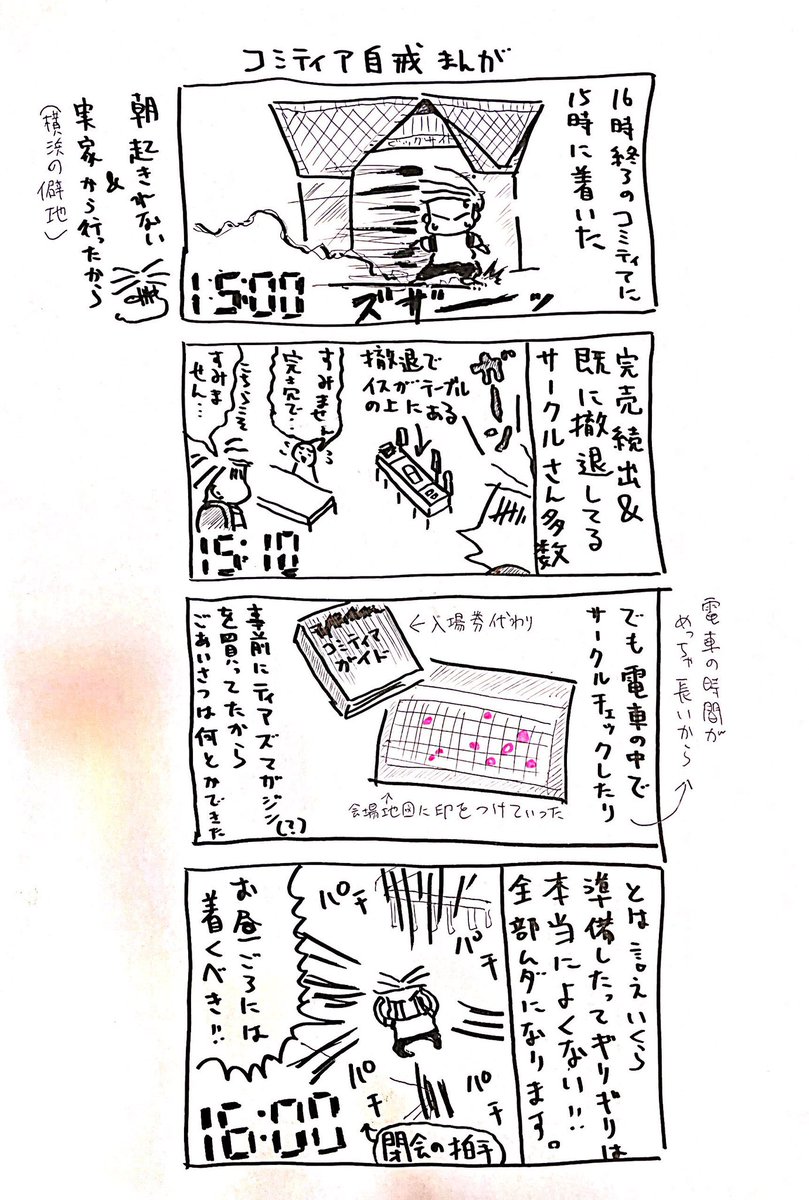 コミティア自戒まんが
16時終了のコミティアに
15時に着いた
ビッグサイト
ズザーーッ
15:00
朝起きれない
&
実家から行ったから
(横浜の僻地)
完売続出&
既に撤退してる
サークルさん多数
ガーン
撤退で
イスがテーブル
の上にある
すみません
完売で…
こちらこそ
すみま
せん…
15:10
でも電車の中で
サークルチェックしたり
電車の時間が
めっちゃ長いから
コミティア
ガイド
←入場券代わり
会場地図に印をつけていった
事前にティアズマガジン(?)
を買ってたから
ごあいさつは何とかできた
とは言えいくら
準備したってギリギリは
本当によくない!!
全部ムダになります。
パチ
パチ
パチ
パチ
お昼ごろには
着くべき!!
閉会の拍手
16:00